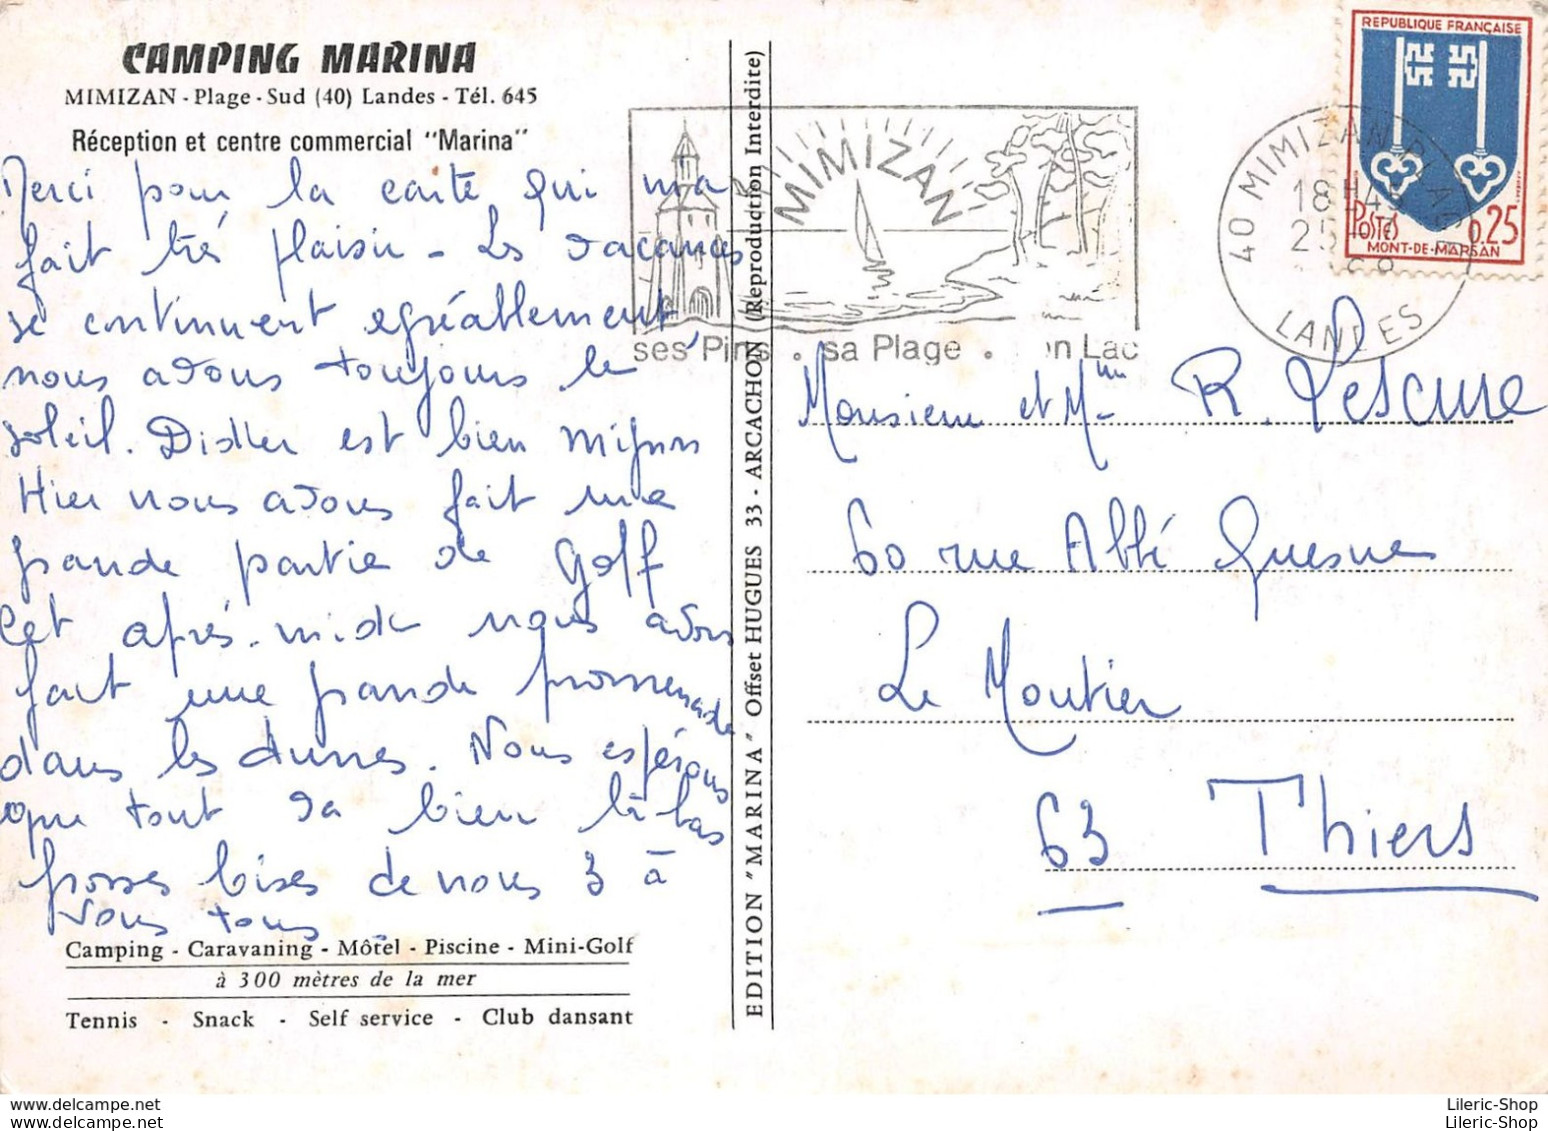 CAMPING MARINA
MIMIZAN - Plage - Sud (40) Landes - Tél. 645
Réception et centre commercial "Marina"
Merci pour la carte qui m'a
fait très plaisir - Les vacances
se continuent agréablement,
nous avons toujours le
soleil. Didier est bien mignon
Hier nous avons fait une
grande partie de Golf
Cet après-midi nous avons
fait une grande promenade
dans les dunes. Nous espérons
que tout va bien là bas
grosses bises de nous 3 à
vous tous
Camping - Caravaning - Môtel - Piscine - Mini-Golf
à 300 mètres de la mer
Tennis - Snack - Self service - Club dansant
EDITION "MARINA" Offset HUGUES 33 - ARCACHON (Reproduction Interdite)
MIMIZAN
ses Pins . sa Plage . on Lac
40 MIMIZAN PLAGE
18H45
25
68
LANDES
REPUBLIQUE FRANÇAISE
POSTES 0,25
MONT-DE-MARSAN
Monsieur et Mme R. Lescure
60 rue Abbé Guesne
Le Moutier
63 Thiers
Lileric-shop.delcampe.net
Lileric-shop.delcampe.net
Lileric-Shop
Lileric-Shop